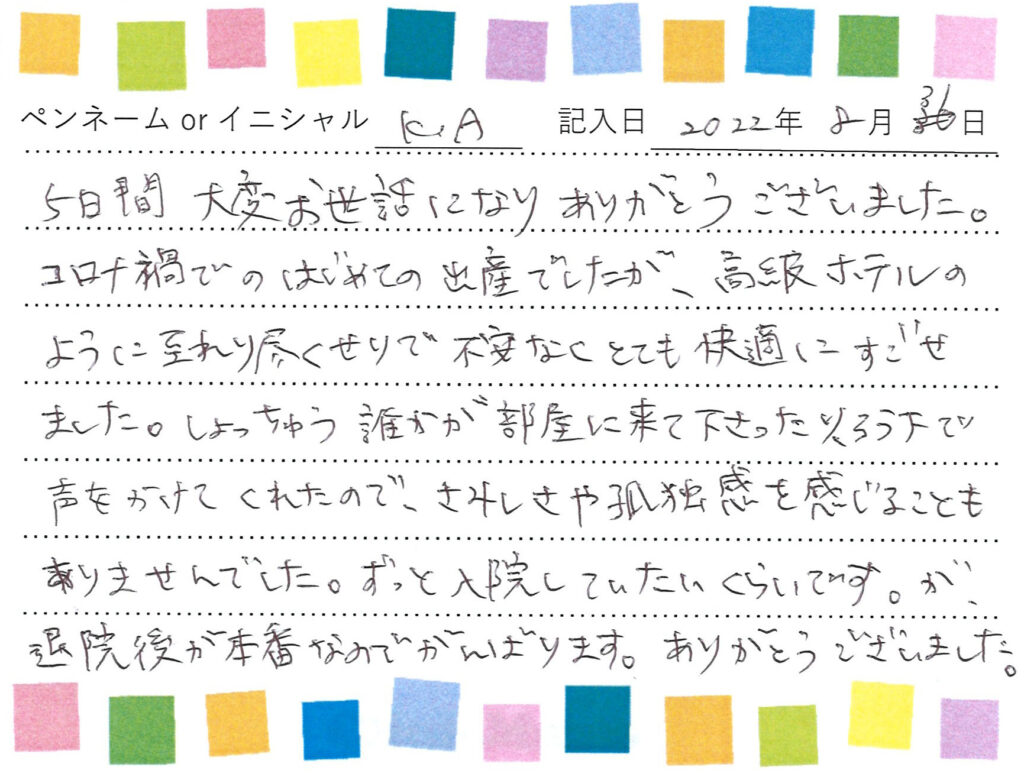 ペンネーム or イニシャル K.A 記入日 2022年 8月 31日
5日間 大変お世話になり ありがとうございました。
コロナ禍でのはじめての出産でしたが、高級ホテルの
ように至れり尽くせりで不安なくとても快適にすごせ
ました。しょっちゅう誰かが部屋に来て下さったりろう下で
声をかけてくれたので、さみしさや孤独感を感じることも
ありませんでした。ずっと入院していたいくらいです。が、
退院後が本番なのでがんばります。ありがとうございました。